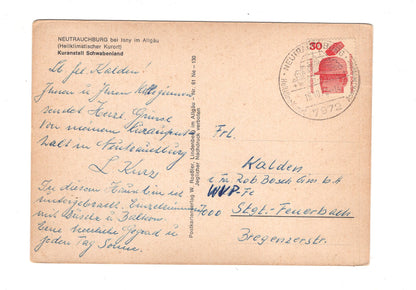 NEUTRAUCHBURG bei Isny im Allgäu
(Heilklimatischer Kurort)
Kuranstalt Schwabenland
Lb. Frl. Kalden!
Ihnen u. Ihren Kolleginnen
sendet Herzl. Grüsse
Von meinem Kuraufent
halt in Neutrauchburg
L. Kurz
In diesem Haus bin ich
untergebracht. Einzelzimmer
mit Dusche u. Balkon.
jeden Tag Sonne.
Postkartenverlag W. Roedler, Lindenberg im Allgäu · Nr. 61 Ne - 130
Jeglicher Nachdruck verboten
30
7972
Frl.
Kalden
Rob. Bosch Gm b H
Stgt.-Feuerbach
Bregenzerstr.